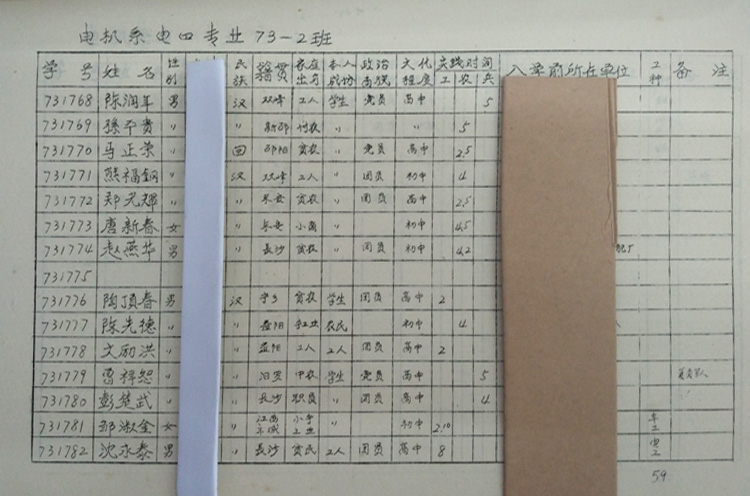 电机系电四专业73-2班
学号 姓名 性别 民族 籍贯 家庭出身 本人成份 政治面貌 文化程度 实践时间 工 农 兵 入学前所在单位 工种 备注
731768 陈润年 男 汉 双峰 工人 学生 党员 高中 5
731769 孫平贵 〃 〃 新邵 付农 〃 〃 5
731770 马正荣 〃 回 邵阳 贫农 〃 党员 高中 2.5
731771 熊福钢 〃 汉 双峰 工人 〃 团员 初中 4
731772 郑尤輝 〃 〃 长安 贫农 〃 团员 高中 2.5
731773 唐新春 女 〃 长安 小商 〃 初中 4.5
731774 赵燕华 男 〃 长沙 贫农 〃 团员 初中 4.2
731775
731776 陶頂春 男 汉 宁乡 贫农 学生 团员 高中 2
731777 陈先德 〃 〃 益阳 农民 初中 4
731778 文励洪 〃 〃 益阳 工人 工人 团员 高中 2
731779 曹祥恕 〃 〃 汨罗 中农 学生 党员 高中 5
731780 彭楚武 〃 〃 长沙 职员 〃 团员 高中 4
731781 邓淑金 女 〃 江西 小手工业 〃 初中 2.10 车工
731782 沈永泰 男 〃 长沙 贫民 工人 团员 高中 8 电工
59